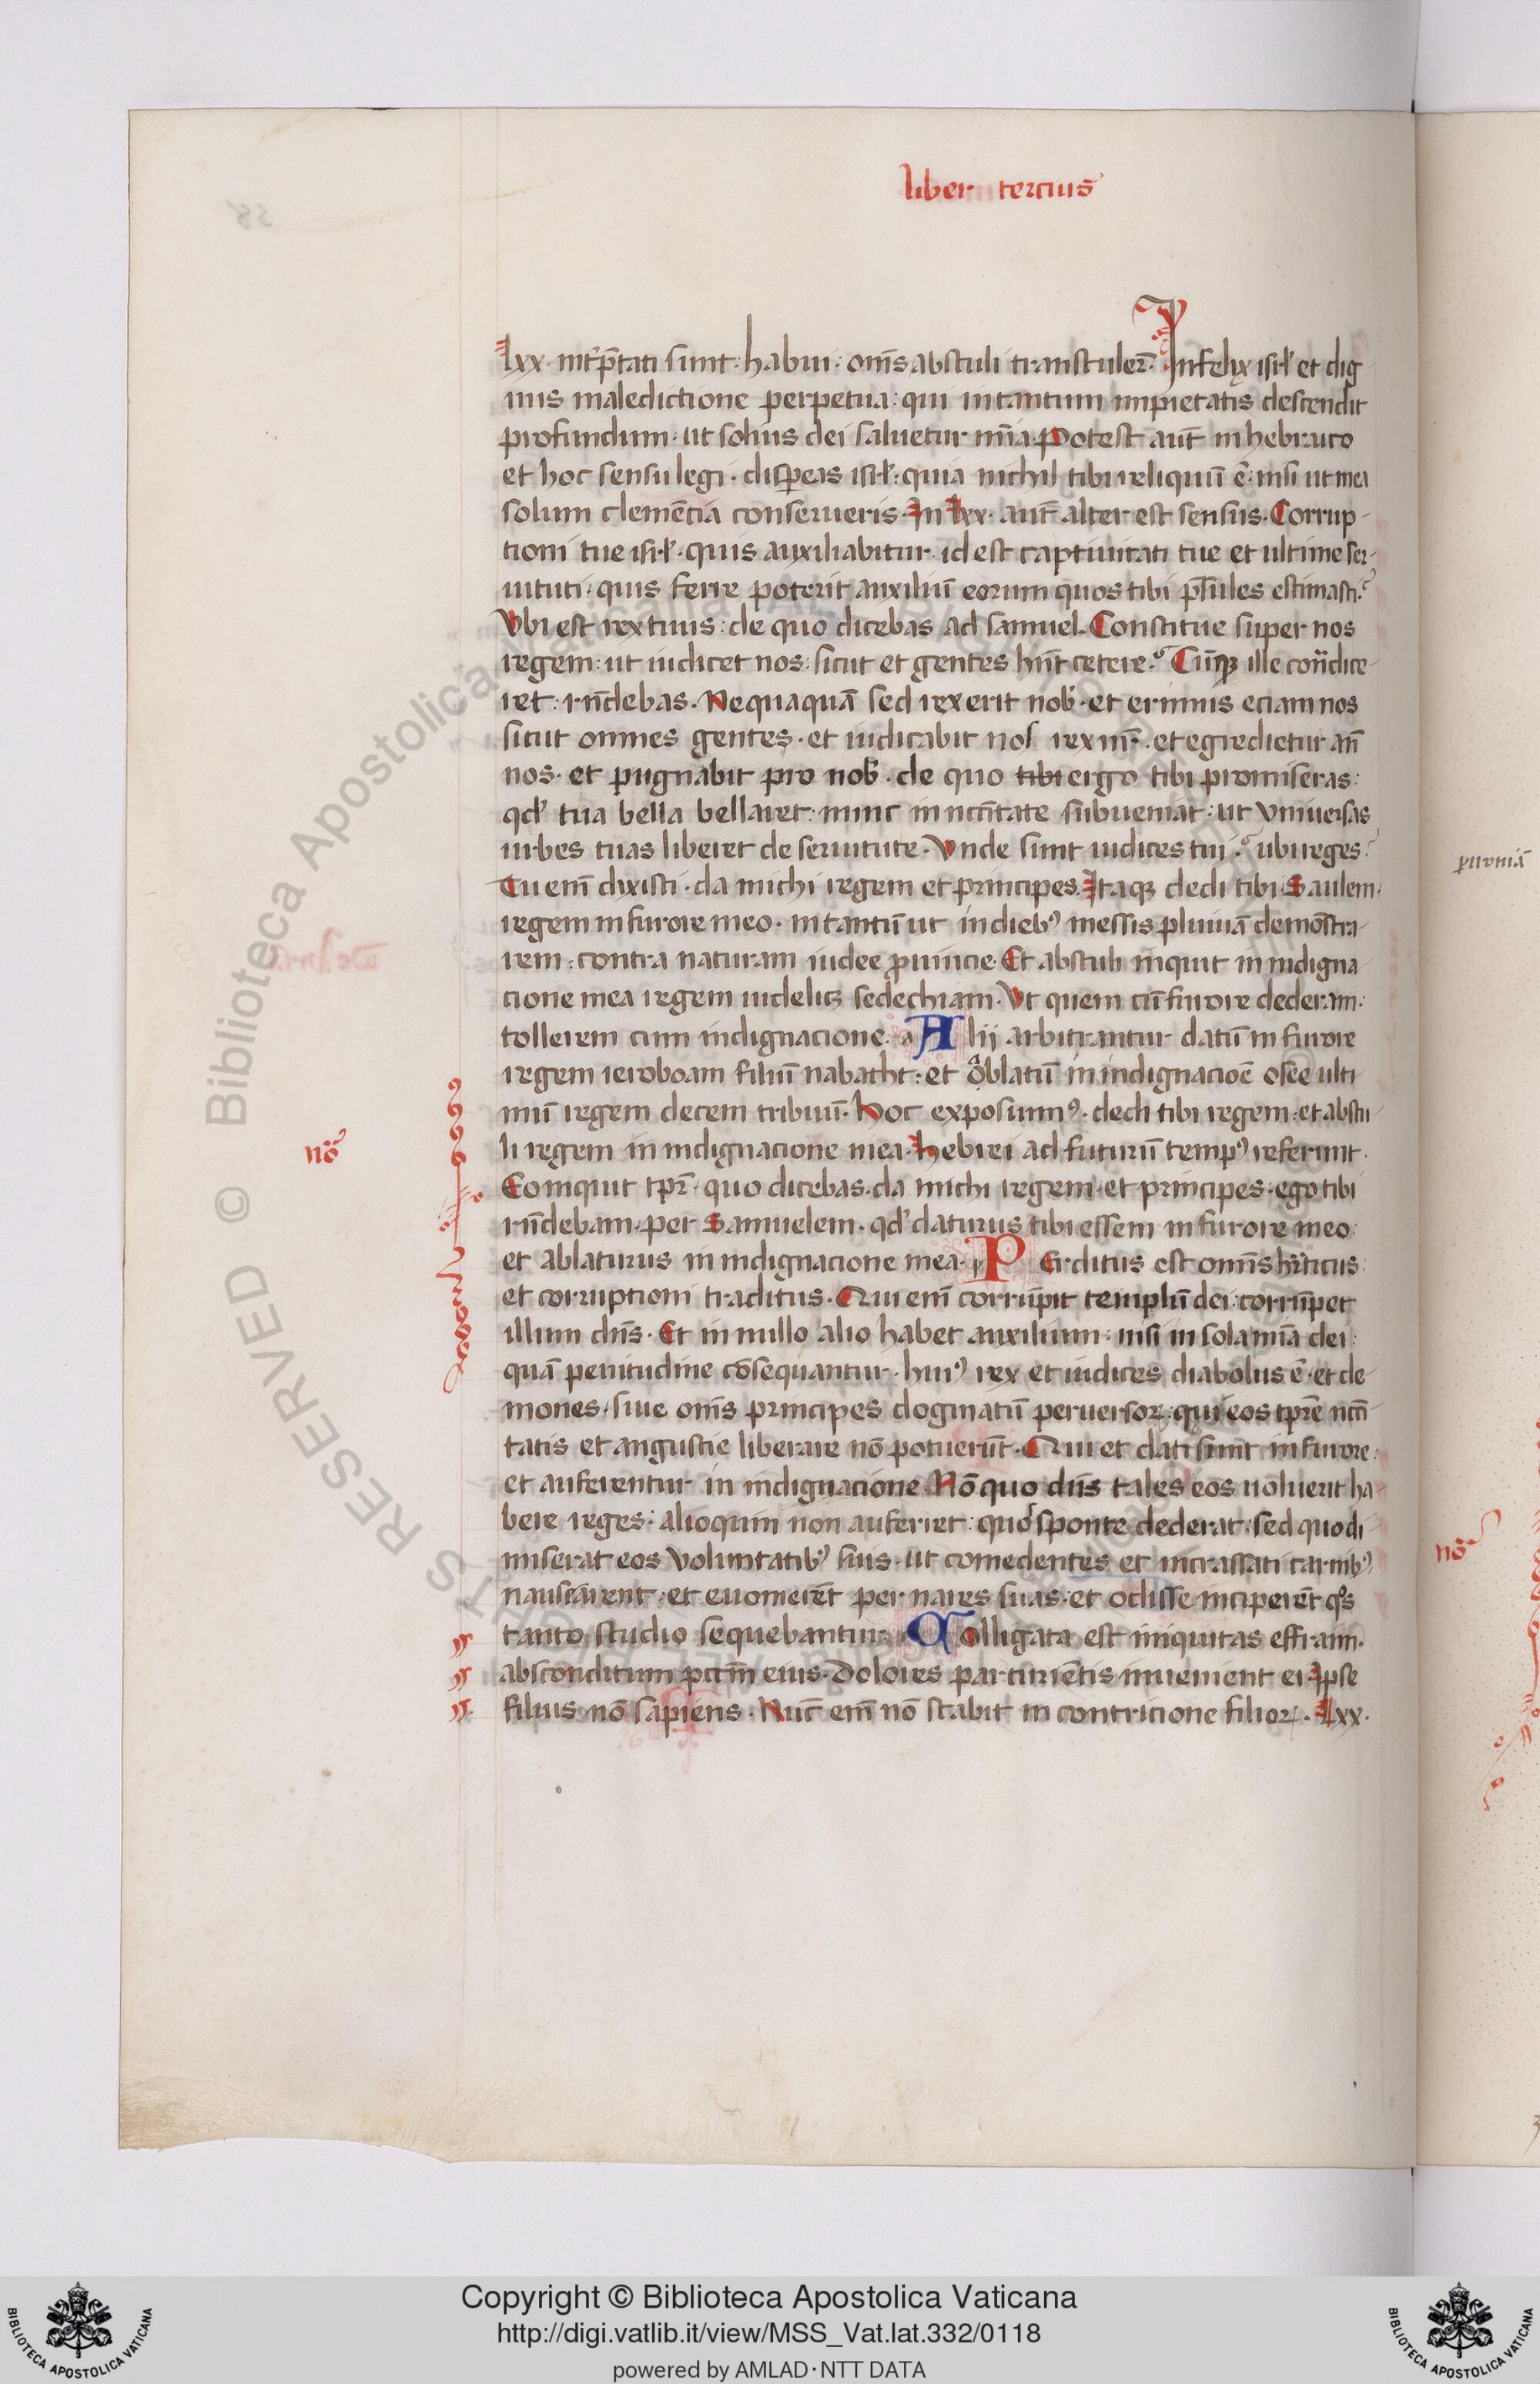 liber tercius
lxx. int̾p̄tati sunt: habui: om̄s abstuli t̾anstuler̄. Infelix isrł et dig
nus maledictione perpetua: qui in tantum impietatis descendit
profundum. ut solius dei saluetur mīa. Potest aut̄ in hebraico
et hoc sensu legi. disp̄eas isrł: quia nichil tibi reliquū ē. nisi ut mea
solum clemēcia conserueris. In lxx. aut̄ alter est sensus. Corrup
tioni tue isrł. quis auxiliabitur. id est captiuitati tue et ultime ser
uituti. quis ferre poterit auxiliū eorum quos tibi p̄sules estimasti?
Vbi est rex tuus: de quo dicebas ad samuel. Constitue super nos
regem: ut iudicet nos: sicut et gentes hn̄t cetere? Cūqꝫ ille cont̾dice
ret: rn̄debas. Nequaquā sed rex erit nob̾. et erimus eciam nos
sicut omnes gentes. et iudicabit nos rex nr̄. et egredietur an̄
nos. et pugnabit pro nob̾. de quo tibi ergo tibi promiseras:
qd̾ tua bella bellaret: nunc in nc̄citate subueniat: ut vniuersas
urbes tuas liberet de seruitute. Vnde sunt iudices tui? ubi reges?
Tu em̄ dixisti. da michi regem et principes. Itaqꝫ dedi tibi Saulem.
regem in furore meo. in tantū ut in dieb꜒ messis pluuiā demōstra
rem: contra naturam iudee ꝓuincie. Et abstuli inquit in indigna
cione mea regem uidelicꝫ sedechiam. Vt quem cū furore dederam:
tollerem cum indignacione. Alij arbitrantur datū in furore
regem ieroboam filiū nabath: et oblatū in indignacioē osee ulti
mū regem decem tribuū. Hoc exposuim꜒. dedi tibi regem: et abstu
li regem in indignacione mea. hebrei ad futurū temp꜒ referunt.
Eo inquit tp̄r. quo dicebas. da michi regem. et principes. ego tibi
rn̄debam. per Samuelem. qd̾ daturus tibi essem in furore meo
et ablaturus in indignacione mea. PErditus est omīs hr̄ticus:
et corruptioni traditus. Qui em̄ corrūpit templū dei: corrūpet
illum dn̄s. Et in nullo alio habet auxilium: nisi in sola mīa dei:
quā penitudine cōsequantur. hui꜒ rex et iudices diabolus ē. et de
mones. siue om̄s principes dogmatū peruersoꝝ: qui eos tp̄re nc̄ci
tatis et angustie liberare nō potuerūt. Qui et dati sunt in furore:
et auferentur in indignacione. Nō quo dn̄s tales eos uoluerit ha
bere reges: alioquin non auferret: quos sponte dederat: sed quo di
miserat eos voluntatib꜒ suis. ut comedentes et incrassati carnib꜒
nausearent. et euomerēt per nares suas. et odisse inciperēt q̊s
tanto studio sequebantur. Colligata est iniquitas effraim.
absconditum pctm̄ eius. Dolores parturiētis inuenient ei. Ipse
filius nō sapiens. Nūc em̄ nō stabit in contricione filioꝝ. Lxx.
nō
nō
Copyright © Biblioteca Apostolica Vaticana
http://digi.vatlib.it/view/MSS_Vat.lat.332/0118
powered by AMLAD·NTT DATA